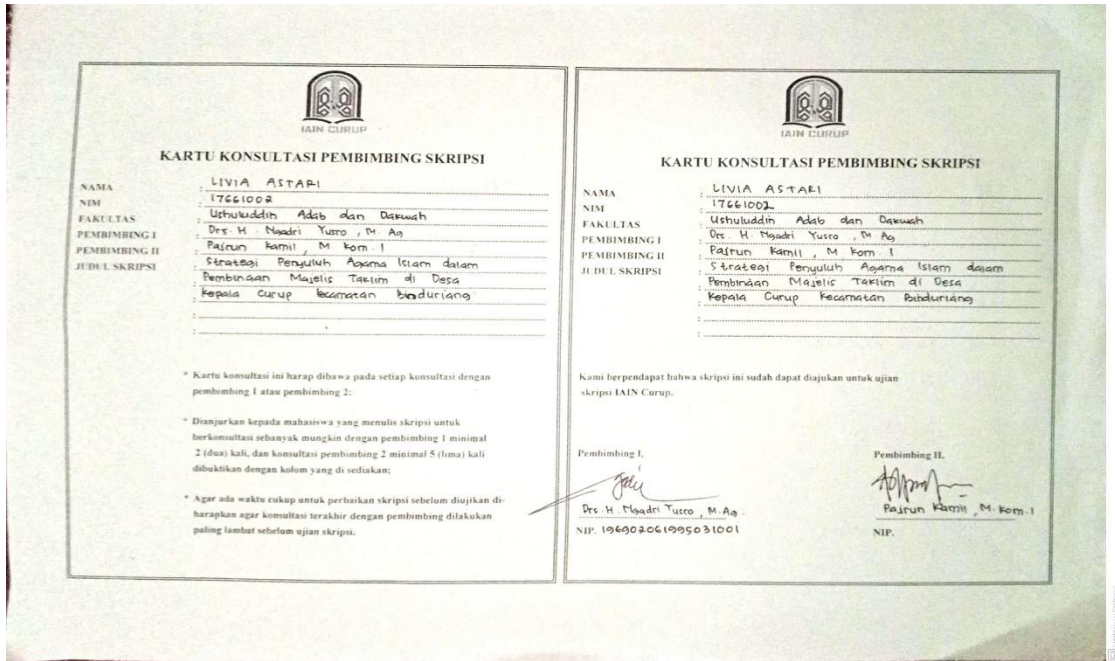 IAIN CURUP
KARTU KONSULTASI PEMBIMBING SKRIPSI
NAMA : LIVIA ASTARI
NIM : 17661002
FAKULTAS : Ushuluddin Adab dan Dakwah
PEMBIMBING I : Drs. H. Ngadri Yusro, M. Ag
PEMBIMBING II : Pajrun Kamil, M Kom. I
JUDUL SKRIPSI : Strategi Penyuluh Agama Islam dalam
: Pembinaan Majelis Taklim di Desa
: Kepala Curup kecamatan binduriang
:
:
* Kartu konsultasi ini harap dibawa pada setiap konsultasi dengan
pembimbing 1 atau pembimbing 2;
* Dianjurkan kepada mahasiswa yang menulis skripsi untuk
berkonsultasi sebanyak mungkin dengan pembimbing 1 minimal
2 (dua) kali, dan konsultasi pembimbing 2 minimal 5 (lima) kali
dibuktikan dengan kolom yang di sediakan;
* Agar ada waktu cukup untuk perbaikan skripsi sebelum diujikan di-
harapkan agar konsultasi terakhir dengan pembimbing dilakukan
paling lambat sebelum ujian skripsi.
IAIN CURUP
KARTU KONSULTASI PEMBIMBING SKRIPSI
NAMA : LIVIA ASTARI
NIM : 17661002
FAKULTAS : Ushuluddin Adab dan Dakwah
PEMBIMBING I : Drs. H. Ngadri Yusro, M. Ag
PEMBIMBING II : Pajrun Kamil, M Kom. I
JUDUL SKRIPSI : Strategi Penyuluh Agama Islam dalam
: Pembinaan Majelis Taklim di Desa
: Kepala Curup Kecamatan Binduriang
:
:
Kami berpendapat bahwa skripsi ini sudah dapat diajukan untuk ujian
skripsi IAIN Curup.
Pembimbing I,
Drs. H. Ngadri Yusro, M.Ag.
NIP. 196902061995031001
Pembimbing II,
Pajrun Kamil, M. Kom. I
NIP.